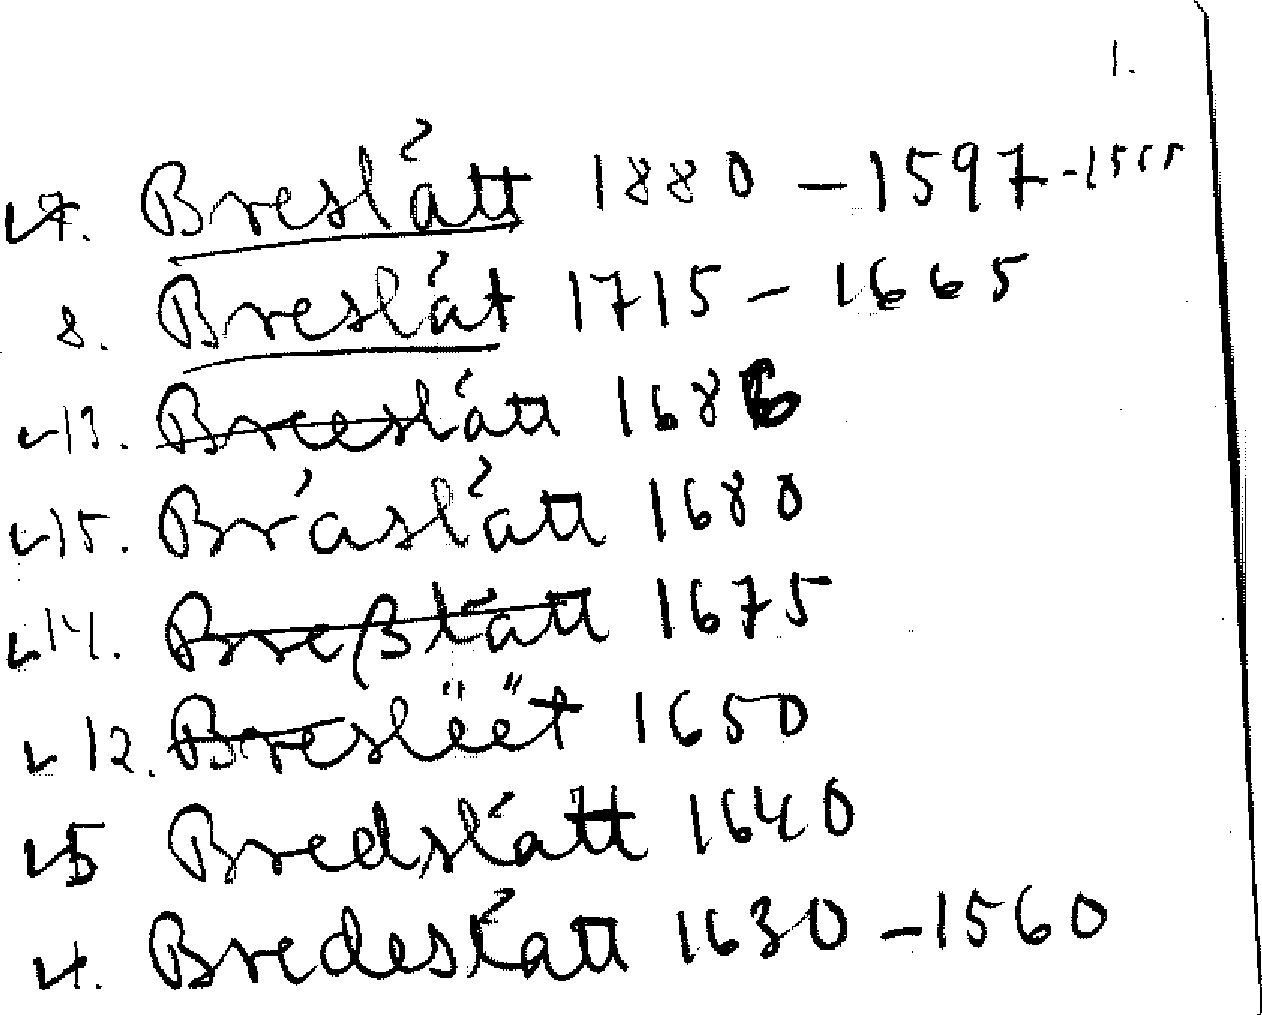 1.
7. Breslått 1880 – 1597 - 1555
8. Breslåt 1715 – 1665
13. Breeslått 1686
15. Bråslått 1680
14. Breßlått 1675
12. Breslëët 1650
5 Bredslått 1640
4. Bredeslått 1630 – 1560